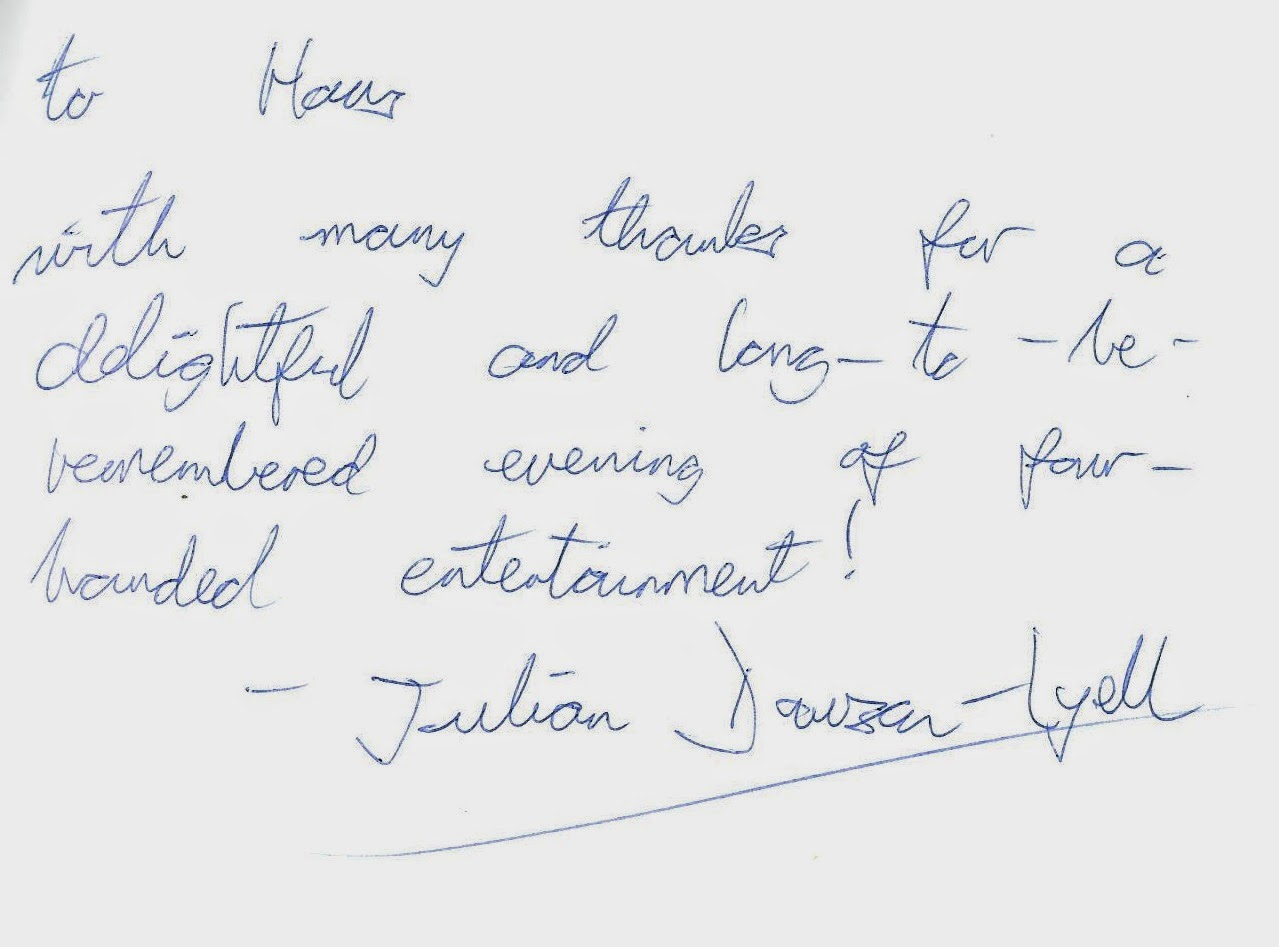 to Hans
with many thanks for a
delightful and long-to-be-
remembered evening of four-
handed entertainment!
- Julian Dawson-Lyell